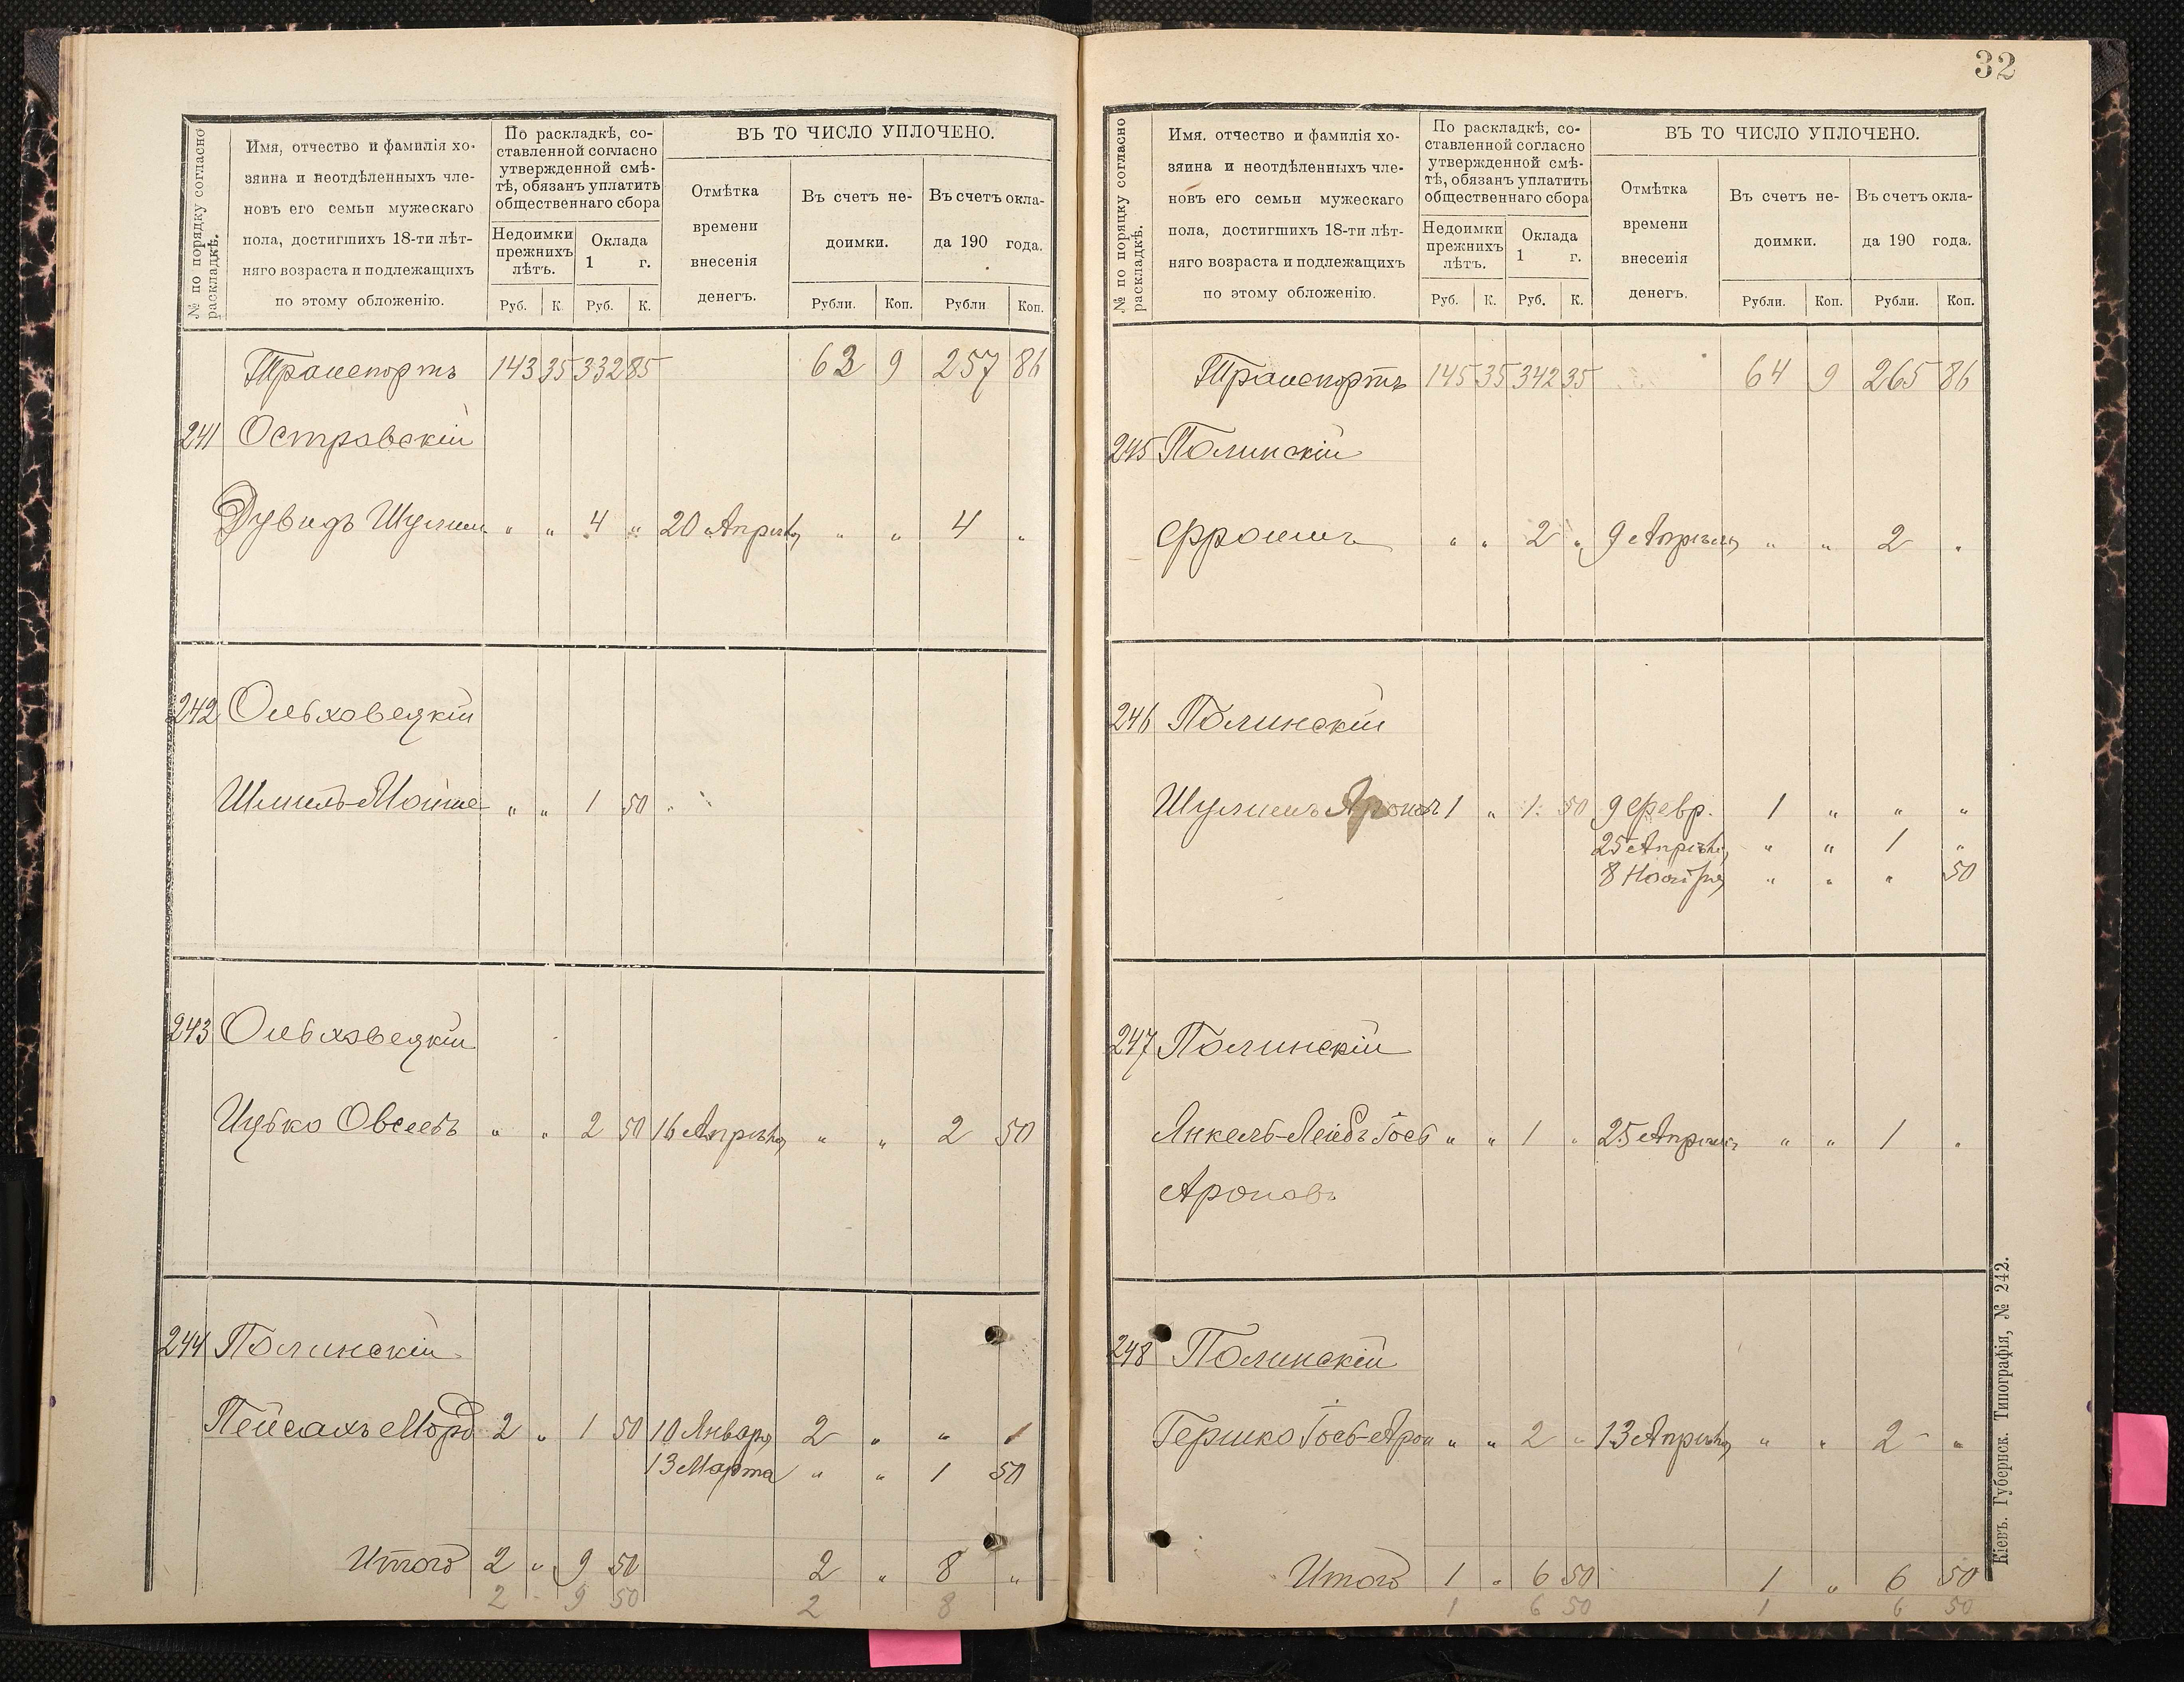 № по порядку согласно раскладкѣ.
Имя, отчество и фамилія хо-
зяина и неотдѣленныхъ чле-
новъ его семьи мужескаго
пола, достигшихъ 18-ти лѣт-
няго возраста и подлежащихъ
по этому обложенію.
По раскладкѣ, со-
ставленной согласно
утвержденной смѣ-
тѣ, обязанъ уплатить
общественнаго сбора
Недоимки
прежнихъ
лѣтъ.
Оклада
1 г.
Руб. К. Руб. К.
ВЪ ТО ЧИСЛО УПЛОЧЕНО.
Отмѣтка
времени
внесенія
денегъ.
Въ счетъ не-
доимки.
Въ счетъ окла-
да 190 года.
Рубли. Коп. Рубли Коп.
Транспортъ 143 35 332 85 62 9 257 86
241 Островскій
Дувидъ Шулим " " 4 " 20 Апрѣля " " 4 "
242 Ольховецкій
Шмиль-Мойше " " 1 50
243 Ольховецкій
Ицько Овсеевъ " " 2 50 16 Апрѣля " " 2 50
244 Полинскій
Пейсахъ Морд 2 " 1 50 10 Января 2 " " "
13 Марта " " 1 50
Итого 2 " 9 50 2 " 8 "
2 - 9 50 2 8
32
№ по порядку согласно раскладкѣ.
Имя. отчество и фамилія хо-
зяина и неотдѣленныхъ чле-
новъ его семьи мужескаго
пола, достигшихъ 18-ти лѣт-
няго возраста и подлежащихъ
по этому обложенію.
По раскладкѣ, со-
ставленной согласно
утвержденной смѣ-
тѣ, обязанъ уплатить
общественнаго сбора
Недоимки
прежнихъ
лѣтъ.
Оклада
1 г.
Руб. К. Руб. К.
ВЪ ТО ЧИСЛО УПЛОЧЕНО.
Отмѣтка
времени
внесенія
денегъ.
Въ счетъ не-
доимки.
Въ счетъ окла-
да 190 года.
Рубли. Коп. Рубли. Коп.
Транспортъ 145 35 342 35 64 9 265 86
245 Полинскій
Фроимъ " " 2 " 9 Апрѣля " " 2 "
246 Полинскій
Шулимъ Ароновъ 1 " 1 50 9 Февр. 1 " " "
25 Апрѣля " " 1 "
8 Ноября " " " 50
247 Полинскій
Янкель-Лейбъ Іось " " 1 " 25 Апрѣля " " 1 "
Ароновъ
248 Полинскій
Гершко Іось-Арон " " 2 " 13 Апрѣля " " 2 "
Итого 1 " 6 50 1 " 6 50
1 6 50 1 6 50
Кіевъ. Губернск. Типографія, № 242.